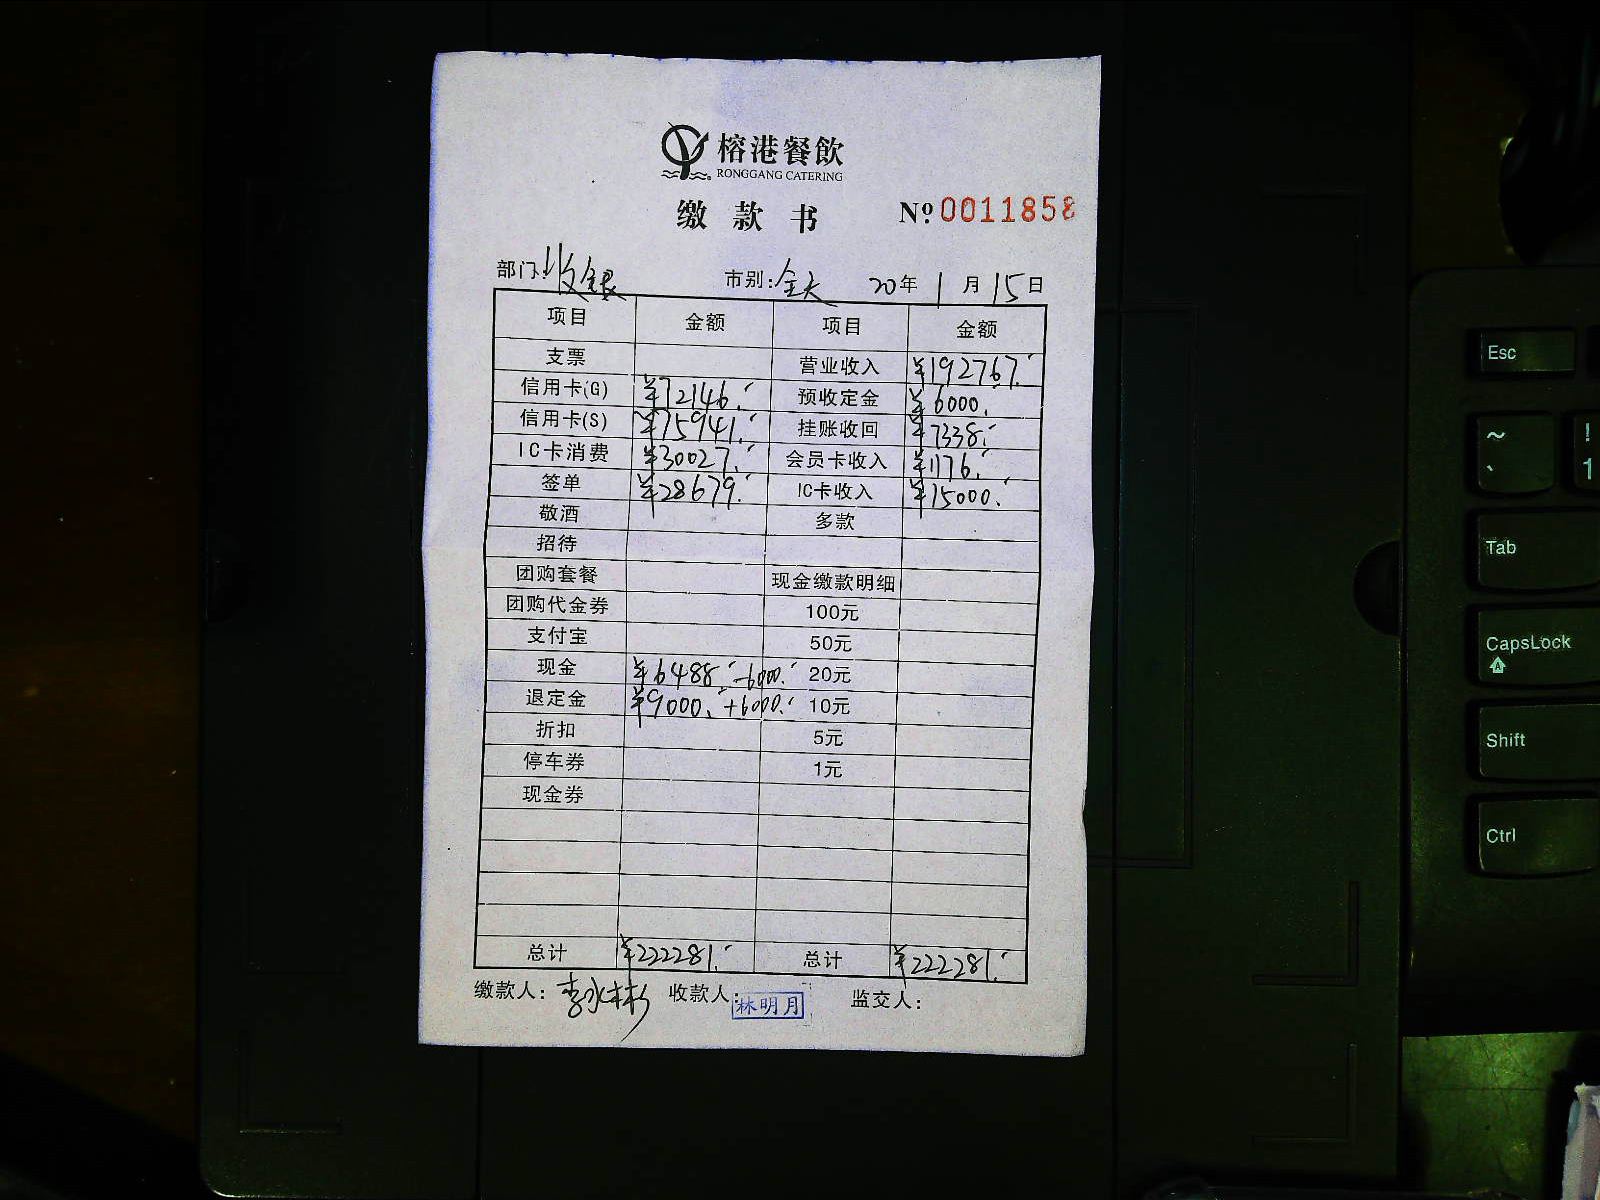 榕港餐飲
RONGGANG CATERING
缴款书 Nº 0011858
部门: 收银 市别: 全天 20年 1月 15日
项目 金额 项目 金额
支票 营业收入 ¥192767.-
信用卡(G) ¥72146.- 预收定金 ¥6000.
信用卡(S) ¥75941.- 挂账收回 ¥7338.-
IC卡消费 ¥30027.- 会员卡收入 ¥1176.-
签单 ¥28679.- IC卡收入 ¥15000.-
敬酒 多款
招待
团购套餐 现金缴款明细
团购代金券 100元
支付宝 50元
现金 ¥6488.- -6000.- 20元
退定金 ¥9000.- +6000.- 10元
折扣 5元
停车券 1元
现金券
总计 ¥222281.- 总计 ¥222281.-
缴款人: 收款人: 林明月 监交人:
Esc
~ ` ! 1
Tab
CapsLock
A
Shift
Ctrl